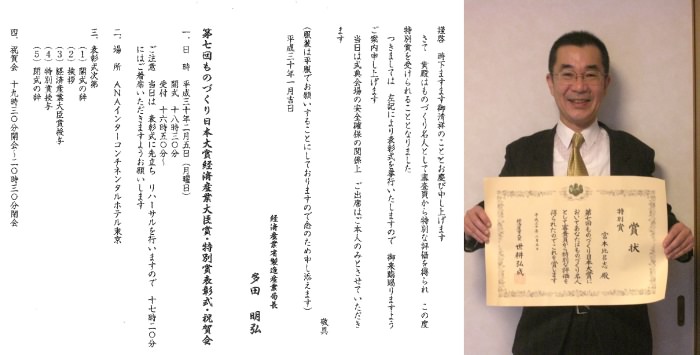 謹啓　時下ますます御清祥のこととお慶び申し上げます
さて　貴殿はものづくり名人として審査員から特別な評価を得られ　この度
特別賞を受けられることとなりました
つきましては　左記により表彰式を挙行いたしますので　御来臨賜りますよう
ご案内申し上げます
当日は式典会場の安全確保の関係上　ご出席はご本人のみとさせていただき
ます
敬具
（服装は平服でお願いすることにしておりますので念のため申し添えます）
平成三十年一月吉日
経済産業省製造産業局長
多田　明弘
第七回ものづくり日本大賞経済産業大臣賞　特別賞表彰式・祝賀会
一、日　時　平成三十年二月五日（月曜日）
開式　十八時三〇分
受付　十六時五〇分～
ご注意　当日は　表彰式に先立ち　リハーサルを行いますので　十七時二〇分
にはご着席いただきますようお願いします
二、場　所　ＡＮＡインターコンチネンタルホテル東京
三、表彰式次第
（１）開式の辞
（２）挨拶
（３）経済産業大臣賞授与
（４）特別賞授与
（５）閉式の辞
四、祝賀会　十九時三〇分開会～二〇時三〇分閉会
賞状
特別賞
宮本比呂志　殿
第七回ものづくり日本大賞に
おいてあなたはものづくり名人
として審査員から特別な評価を
得られたのでこれを賞します
経済産業大臣　世耕弘成